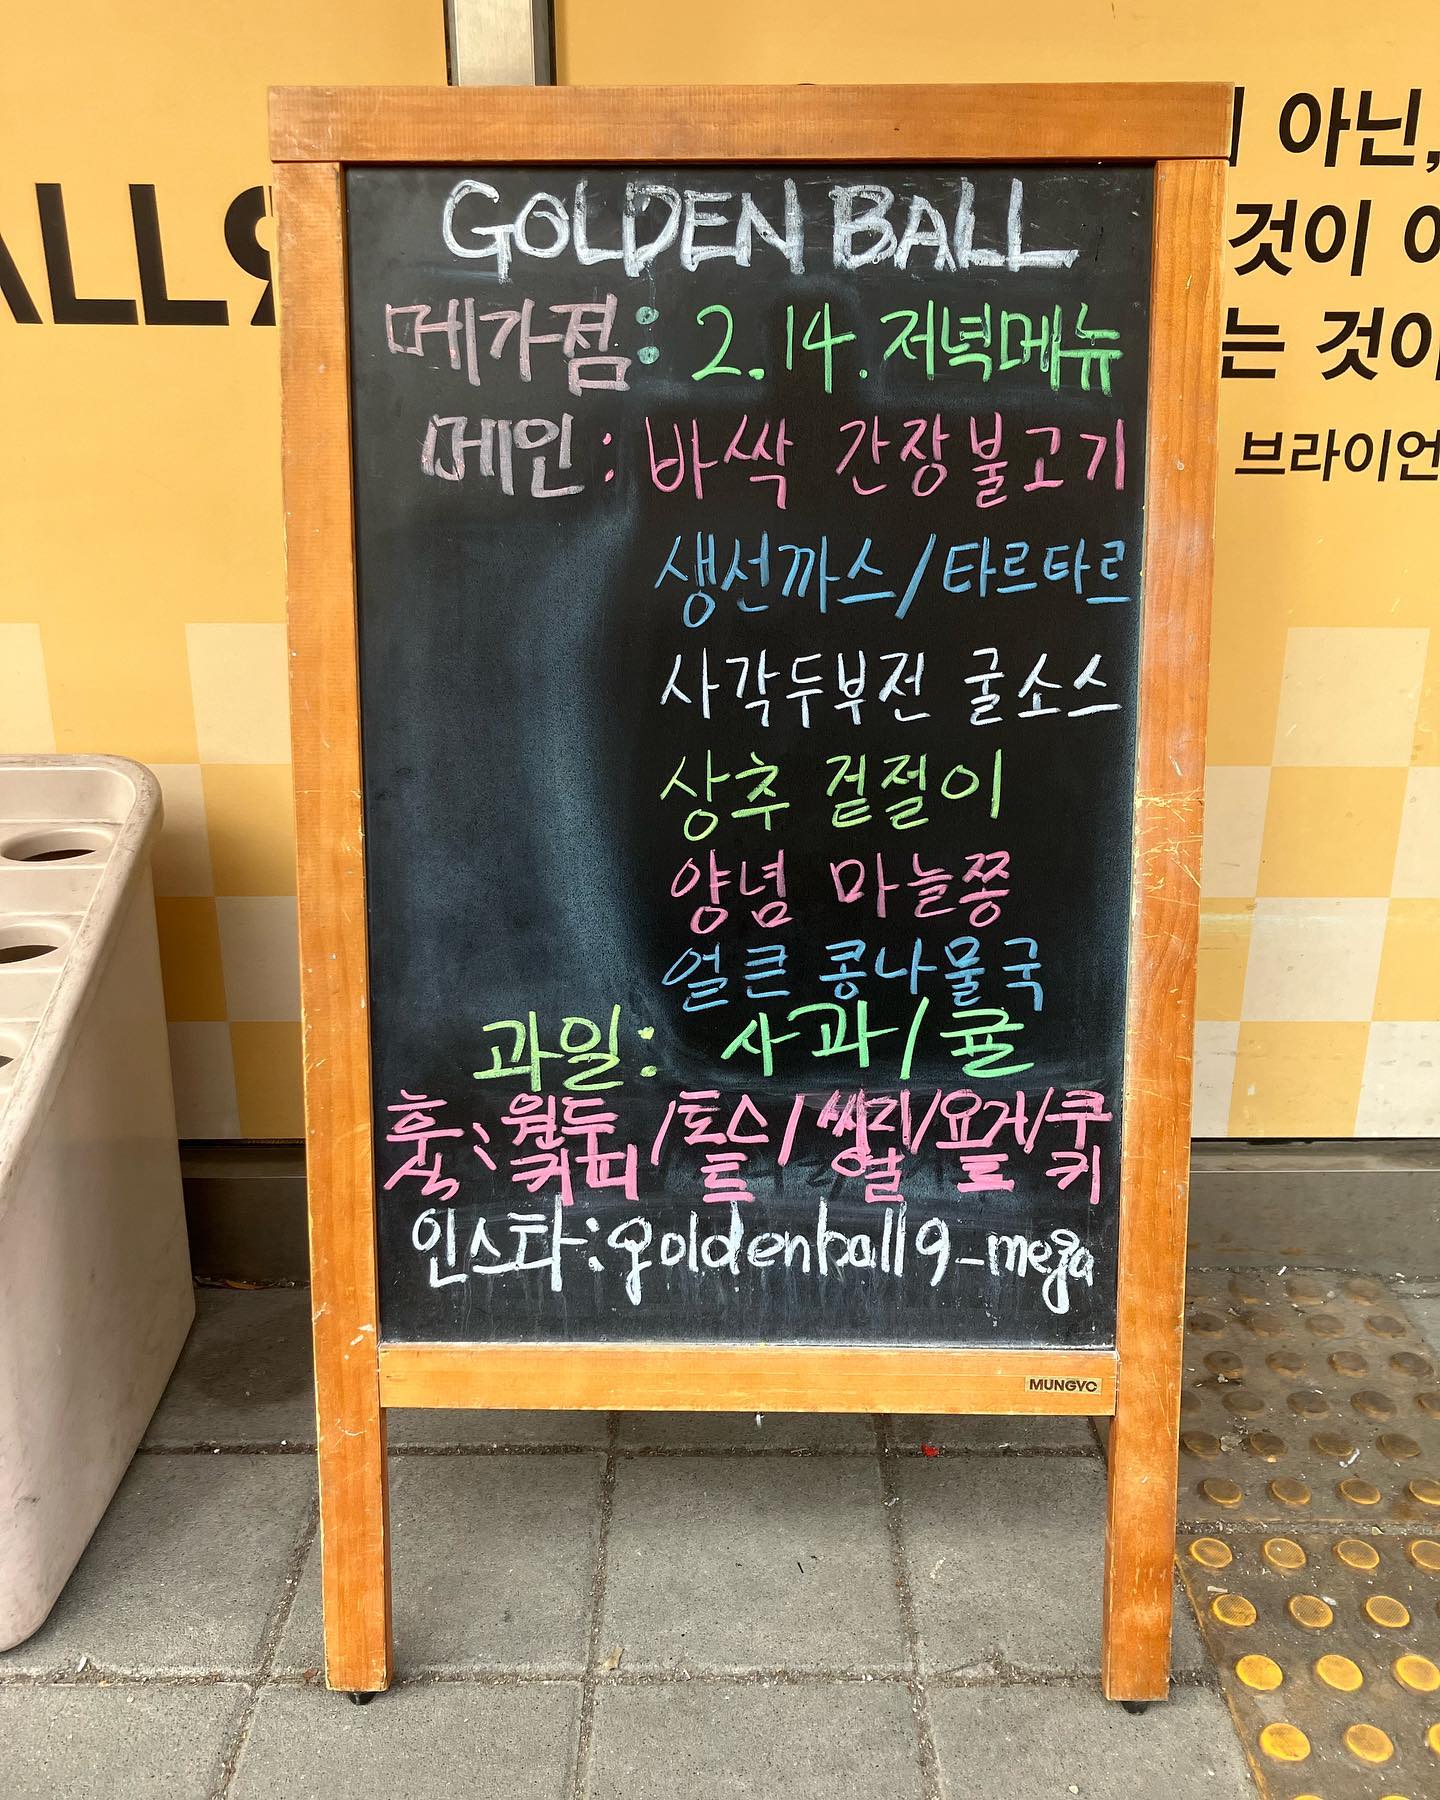 GOLDEN BALL
메가점: 2.14. 저녁메뉴
메인: 바싹 간장불고기
생선까스/타르타르
사각두부전 굴소스
상추 겉절이
양념 마늘쫑
얼큰 콩나물국
과일: 사과/귤
후식: 원두커피/토스트/씨리얼/요거트/쿠키
인스타:goldenball9_mega
MUNGYO
ALL9
아닌,
것이
는 것이
브라이언